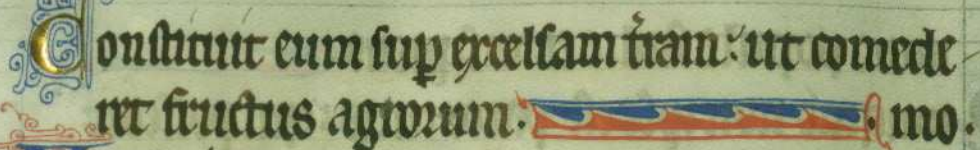 Constituit eum sup̲ excelsam t̄ram: ut comede
ret fructus agrorum. mo